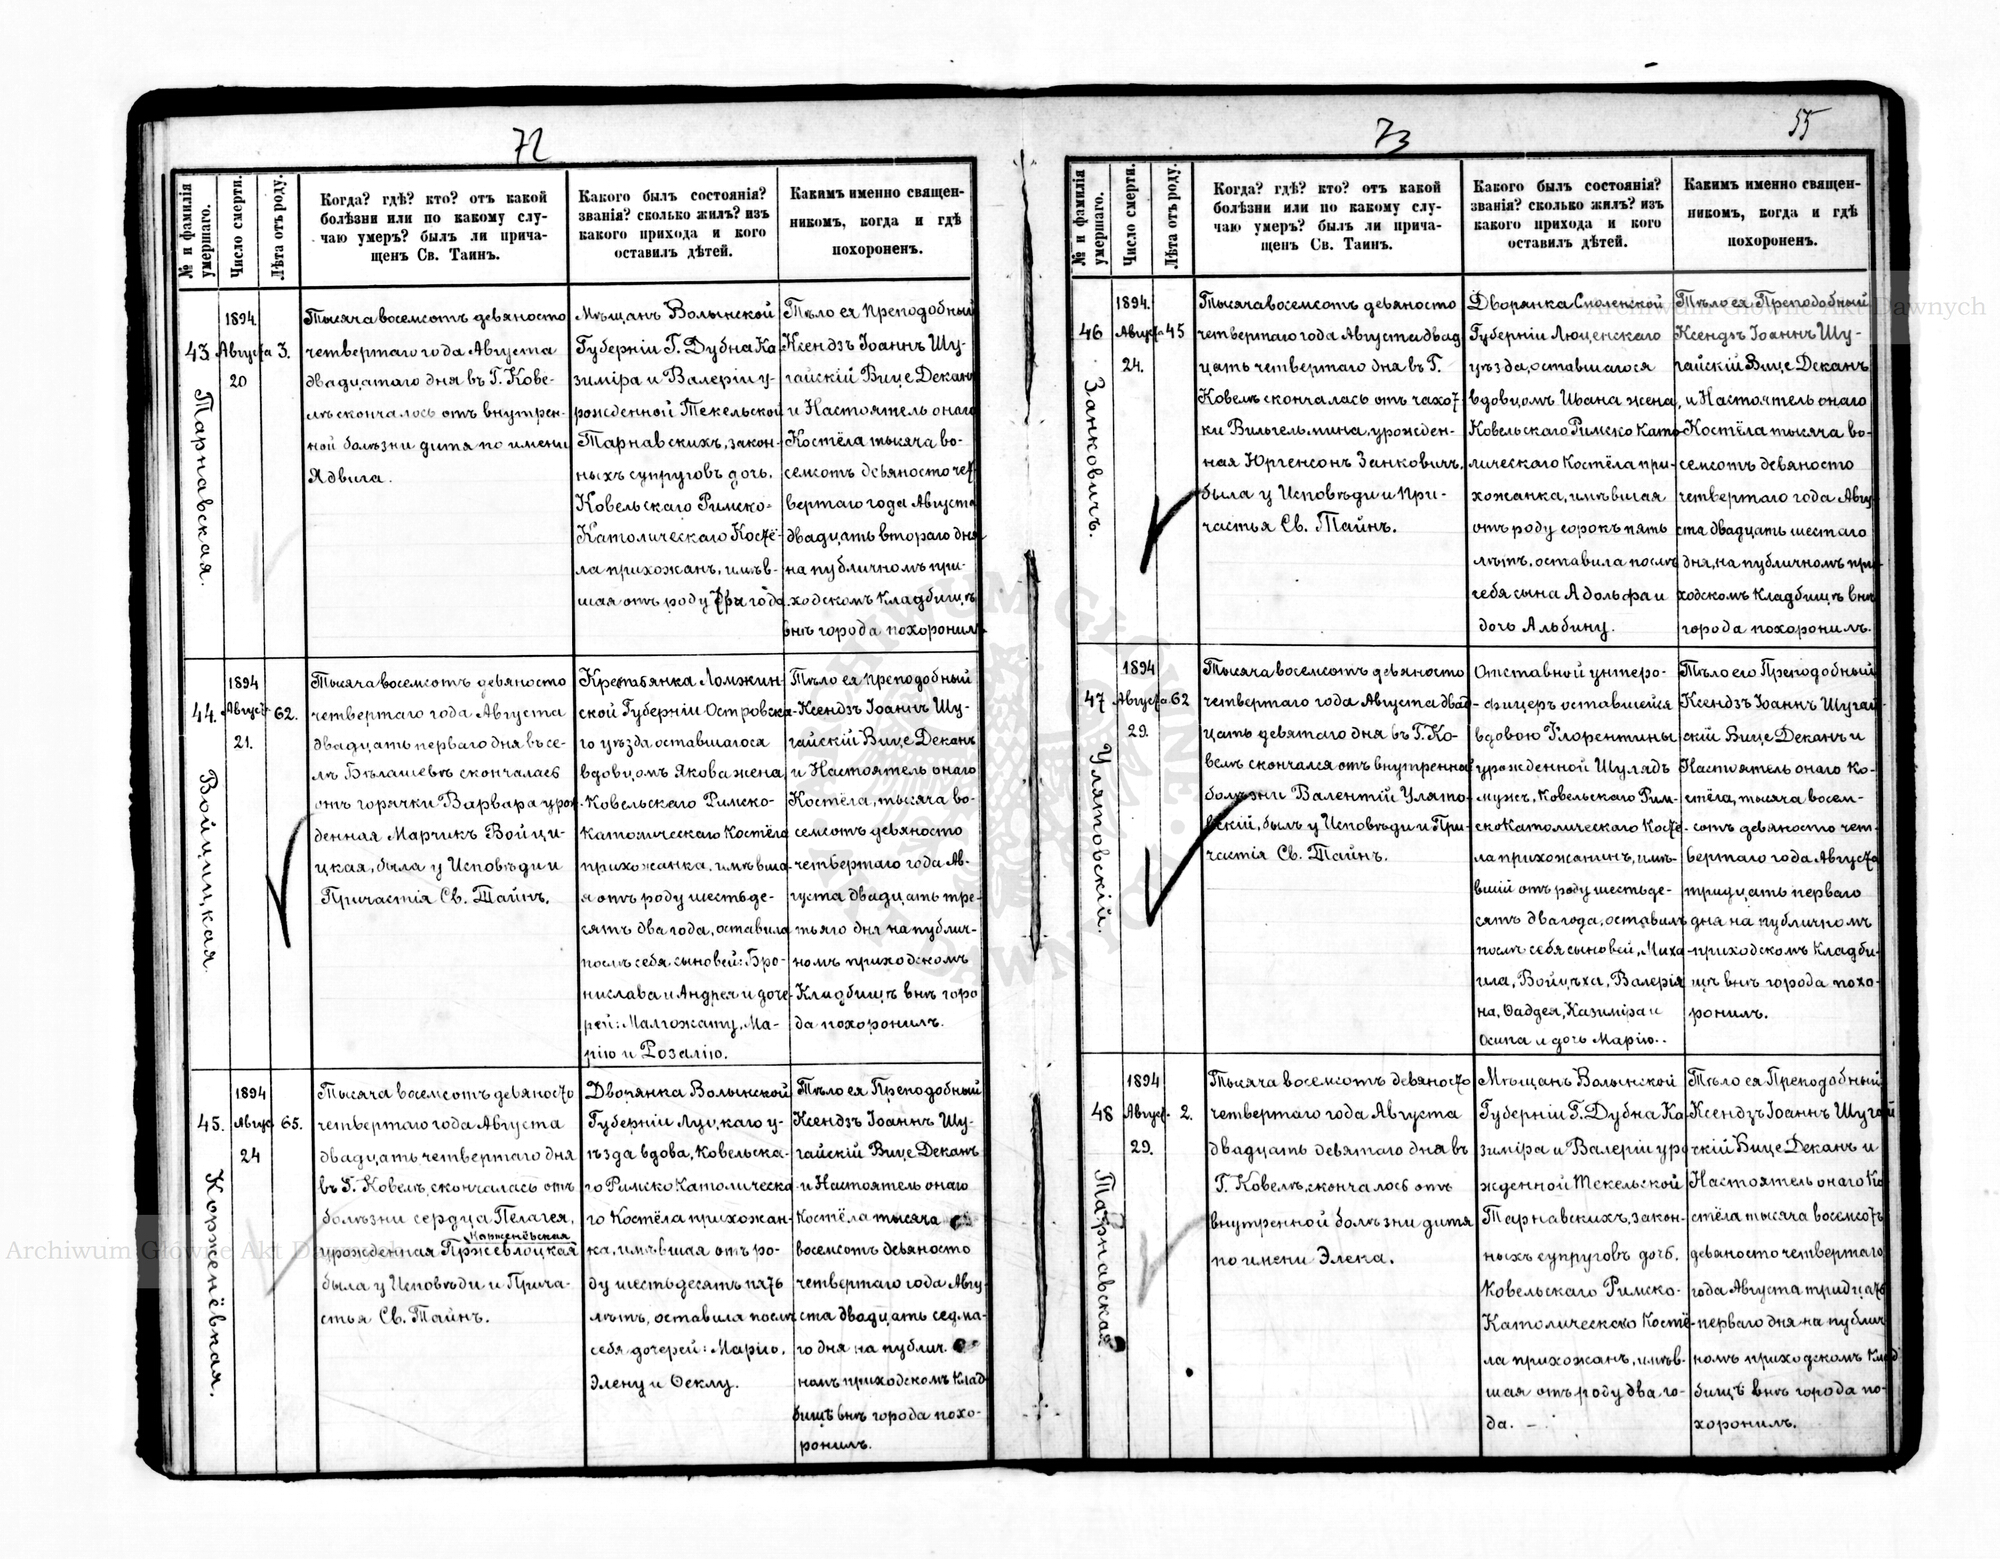 72
№ и фамилія умершаго.
Число смерти.
Лѣта отъ роду.
Когда? гдѣ? кто? отъ какой
болѣзни или по какому слу-
чаю умеръ? былъ ли прича-
щенъ Св. Таинъ.
Какого былъ состоянія?
званія? сколько жилъ? изъ
какого прихода и кого
оставилъ дѣтей.
Какимъ именно священ-
никомъ, когда и гдѣ
похороненъ.
43
Тарнавская.
1894
Августа
20
3.
Тысяча восемсотъ девяносто
четвертаго года Августа
двадцатаго дня въ Г. Кове-
лѣ скончалось отъ внутрен-
ной болѣзни дитя по имени
Ядвига.
Мѣщанъ Волынской
Губерніи Г. Дубна Ка-
зиміра и Валеріи у-
рожденной Текельской
Тарнавскихъ, закон-
ныхъ супруговъ дочь.
Ковельскаго Римско-
Католическаго Костё-
ла прихожанъ, имѣв-
шая отъ роду три года.
Тѣло ея Преподобный
Ксендзъ Іоаннъ Шу-
гайскій Вице Деканъ
и Настоятель онаго
Костёла тысяча во-
семсотъ девяносто чет
вертаго года Августа
двадцать втораго дня
на публичномъ при-
ходскомъ кладбищѣ
внѣ города похоронилъ
44.
Войцицкая.
1894
Август
21.
62.
Тысяча восемсотъ девяносто
четвертаго года Августа
двадцать перваго дня въ се-
лѣ Бѣлашевѣ скончалась
отъ горячки Варвара урож
денная Марчикъ Войци-
цкая, была у Исповѣди и
Причастія Св. Тайнъ.
Крестьянка Ломжин-
ской Губерніи Островска-
го уѣзда оставшагося
вдовцомъ Якова жена
Ковельскаго Римско-
Католическаго Костёла
прихожанка, имѣвша
я отъ роду шестьде-
сятъ два года, оставила
послѣ себя сыновей: Бро-
нислава и Андрея и доче-
рей: Малгожату, Ма-
рію и Розалію.
Тѣло ея Преподобный
Ксендзъ Іоаннъ Шу-
гайскій Вице Деканъ
и Настоятель онаго
Костёла, тысяча во-
семсотъ девяносто
четвертаго года Ав-
густа двадцать тре-
тьяго дня на публич-
номъ приходскомъ
Кладбищѣ внѣ горо
да похоронилъ.
45.
Корженёвкая.
1894
Авгус
24
65.
Тысяча восемсотъ девяносто
четвертаго года Августа
двадцать четвертаго дня
въ Г. Ковелѣ, скончалась отъ
болѣзни сердца Пелагея,
Корженёвская
урожденная Пржевлоцкая
была у Исповѣди и Прича-
стья Св. Тайнъ.
Дворянка Волынской
Губерніи Луцкаго у-
ѣзда вдова, Ковельска-
го Римско Католическа-
го Костёла прихожан-
ка, имѣвшая отъ ро-
ду шестьдесятъ пять
лѣтъ, оставила послѣ
себя дочерей: Марію,
Элену и Ѳеклу.
Тѣло ея Преподобный
Ксендзъ Іоаннъ Шу-
гайскій Вице Деканъ
и Настоятель онаго
Костёла тысяча
восемсотъ девяносто
четвертаго года Авгу-
ста двадцать седма-
го дня на публич.
номъ приходскомъ Клад
бищѣ внѣ города похо-
ронилъ.
73
55
№ и фамилія умершаго.
Число смерти.
Лѣта отъ роду.
Когда? гдѣ? кто? отъ какой
болѣзни или по какому слу-
чаю умеръ? былъ ли прича-
щенъ Св. Таинъ.
Какого былъ состоянія?
званія? сколько жилъ? изъ
какого прихода и кого
оставилъ дѣтей.
Какимъ именно священ-
никомъ, когда и гдѣ
похороненъ.
46
Занковичъ.
1894.
Августа
24.
45
Тысяча восемсотъ девяносто
четвертаго года Августа двад
цать четвертаго дня въ Г.
Ковелѣ скончалась отъ чахот
ки Вильгельмина, урожден-
ная Юргенсонъ Занковичъ,
была у Исповѣди и При-
частья Св. Тайнъ.
Дворянка Смоленской
Губерніи Люценскаго
уѣзда, оставшагося
вдовцомъ Ивана жена,
Ковельскаго Римско Като-
лическаго Костёла при-
хожанка, имѣвшая
отъ роду сорокъ пять
лѣтъ, оставила послѣ
себя сына Адольфа и
дочь Альбину.
Тѣло ея Преподобный
Ксендзъ Іоаннъ Шу-
гайскій Вице Деканъ
и Настоятель онаго
Костёла тысяча во-
семсотъ девяносто
четвертаго года Авгу
ста двадцать шестаго
дня, на публичномъ при-
ходскомъ Кладбищѣ внѣ
города похоронилъ.
47
Улятовскій.
1894
Августа
29.
62
Тысяча восемсотъ девяносто
четвертаго года Августа двад
цать девятаго дня въ Г. Ко-
велѣ скончался отъ внутренней
болѣзни Валентій Улято-
вскій, былъ у Исповѣди и При-
частія Св. Тайнъ.
Отставной унтеро-
фицеръ оставшейся
вдовою Флорентины
урожденной Шулядъ
мужъ, Ковельскаго Рим-
скоКатолическаго Костё-
ла прихожанинъ, имѣ-
вшій отъ роду шестьде-
сятъ два года, оставилъ
послѣ себя сыновей, Миха
ила, Войцѣха, Валерія
на, Ѳаддея, Казиміра и
Осипа и дочь Марію..
Тѣло его Преподобный
Ксендзъ Іоаннъ Шугай
скій Вице Деканъ и
Настоятель онаго Ко-
стёла, тысяча восем-
сотъ девяносто чет-
вертаго года Августа
тридцать перваго
дня на публичномъ
приходскомъ Кладби-
щѣ внѣ города похо-
ронилъ.
48
Тарнавская.
1894
Август
29.
2.
Тысяча восемсотъ девяносто
четвертаго года Августа
двадцать девятаго дня въ
Г. Ковелѣ, скончалось отъ
внутренной болѣзни дитя
по имени Элека.
Мѣщанъ Волынской
Губерніи Г. Дубна Ка
зиміра и Валеріи уро
жденной Текельской
Тарнавскихъ, закон-
ныхъ супруговъ дочь.
Ковельскаго Римско-
Католическко Костё-
ла прихожанъ, имѣв-
шая отъ роду два го-
да. —
Тѣло ея Преподобный
Ксендзъ Іоаннъ Шугай
скій Вице Деканъ и
Настоятель онаго Ко
стёла тысяча восемсотъ
девяносто четвертаго
года Августа тридцать
перваго дня на публич
номъ приходскомъ Клад
бищѣ внѣ города по-
хоронилъ.
Archiwum Główne Akt Dawnych
Archiwum Główne Akt Dawnych
ARCHIWUM GŁÓWNE AKT DAWNYCH